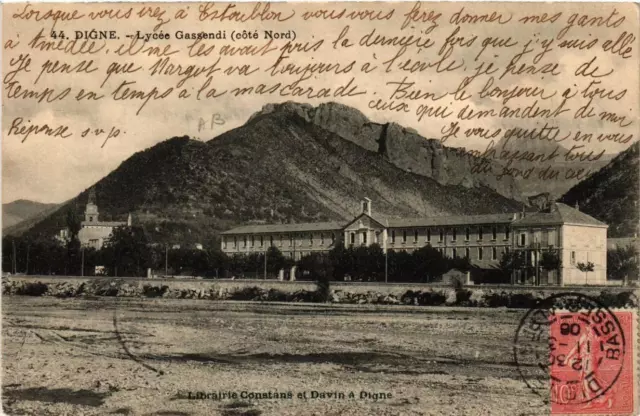 Lorsque vous irez à Estoublon vous vous ferez donner mes gants
44. DIGNE. - Lycée Gassendi (côté Nord)
à Amédée il me les avait pris la dernière fois que j'y suis allé
Je pense que Margot va toujours à l'école, je pense de
temps en temps à la mascarade
Bien le bonjour à tous
ceux qui demandent de mes
Réponse svp
Je vous quitte en vous
embrassant tous
du fond du cœur
AB
Librairie Constans et Davin à Digne
BASSES
08
10